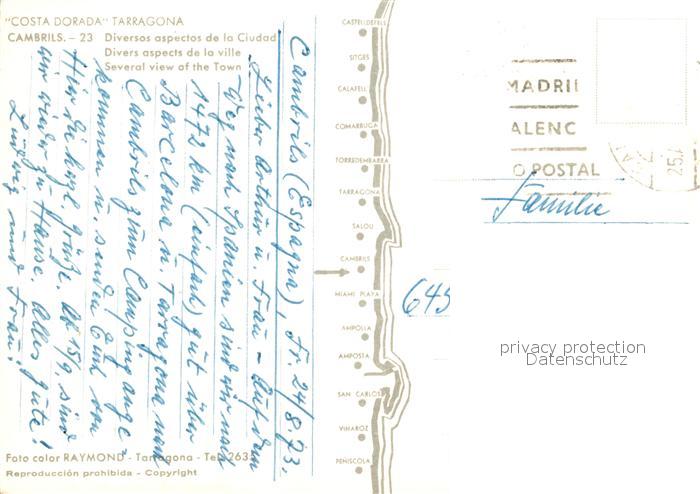 "COSTA DORADA" TARRAGONA
CAMBRILS. – 23 Diversos aspectos de la Ciudad
Divers aspects de la ville
Several view of the Town
Cambrils (Espagna), Fr. 24/8.73.
Lieber Arthur u. Frau – Auf dem
Weg nach Spanien sind wir nach
1472 km (einfach) gut über
Barcelona u. Tarragona nach
Cambrils zum Camping ange-
kommen u. senden Euch von
Hier die besten Grüße. Ab 15/9. sind
wir wieder zu Hause. Alles Gute!
Ludwig und Frau!
Foto color RAYMOND - Tarragona - Tel. 263
Reproducción prohibida - Copyright
CASTELLDEFELS
SITGES
CALAFELL
COMARRUGA
TORREDEMBARRA
TARRAGONA
SALOU
CAMBRILS
MIAMI PLAYA
AMPOLLA
AMPOSTA
SAN CARLOS
VINAROZ
PEÑISCOLA
MADRI
ALENC
O POSTAL
25
Familie
645
privacy protection
Datenschutz